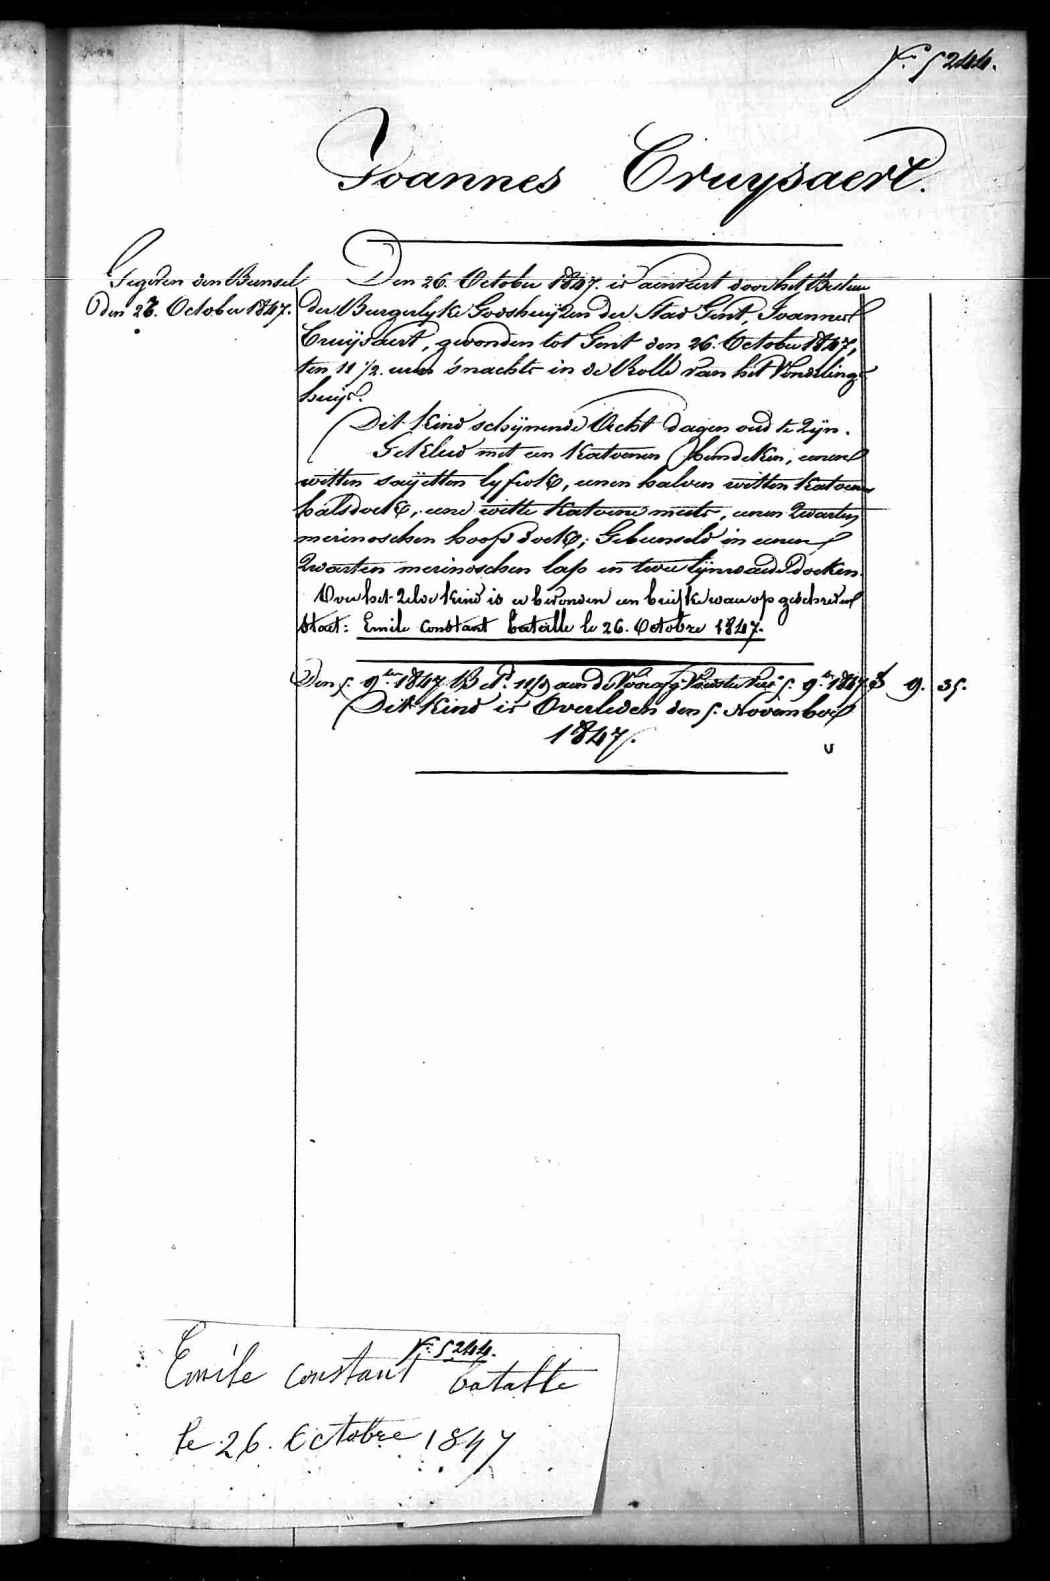 N.º 5244.
Joannes Cruysaert.
Gegeven den Bunsel
den 27. October 1847.
Den 26. October 1847. is aenveert door het Bestuer
der Burgerlyke Godshuijzen der Stad Gent, Joannes
Cruijsaert, gevonden tot Gent den 26. October 1847,
ten 11 1/2. uren s'nachts in de Rolle van het Vondelings
huijs.
Dit kind schijnende Acht dagen oud te zijn.
Gekleed met een katoenen hemdeken, eenen
witten saijetten lyfrok, eenen halven witten katoenen
halsdoek, eene witte katoene muts, eenen zwarten
merinoschen hoofddoek; Gebunseld in eenen
zwarten merinoschen lap en twee lijnwaade doeken.
Over het zelve kind is er bevonden een briefke waer op geschreven
staet: Emile constant batalle le 26. Octobre 1847.
Den 5. 9ber 1847. B et N.º aen de 5. 9ber 1847 9. 35.
Dit kind is Overleden den 5. November
1847.
N.º 5244.
Emile constant batalle
le 26. Octobre 1847